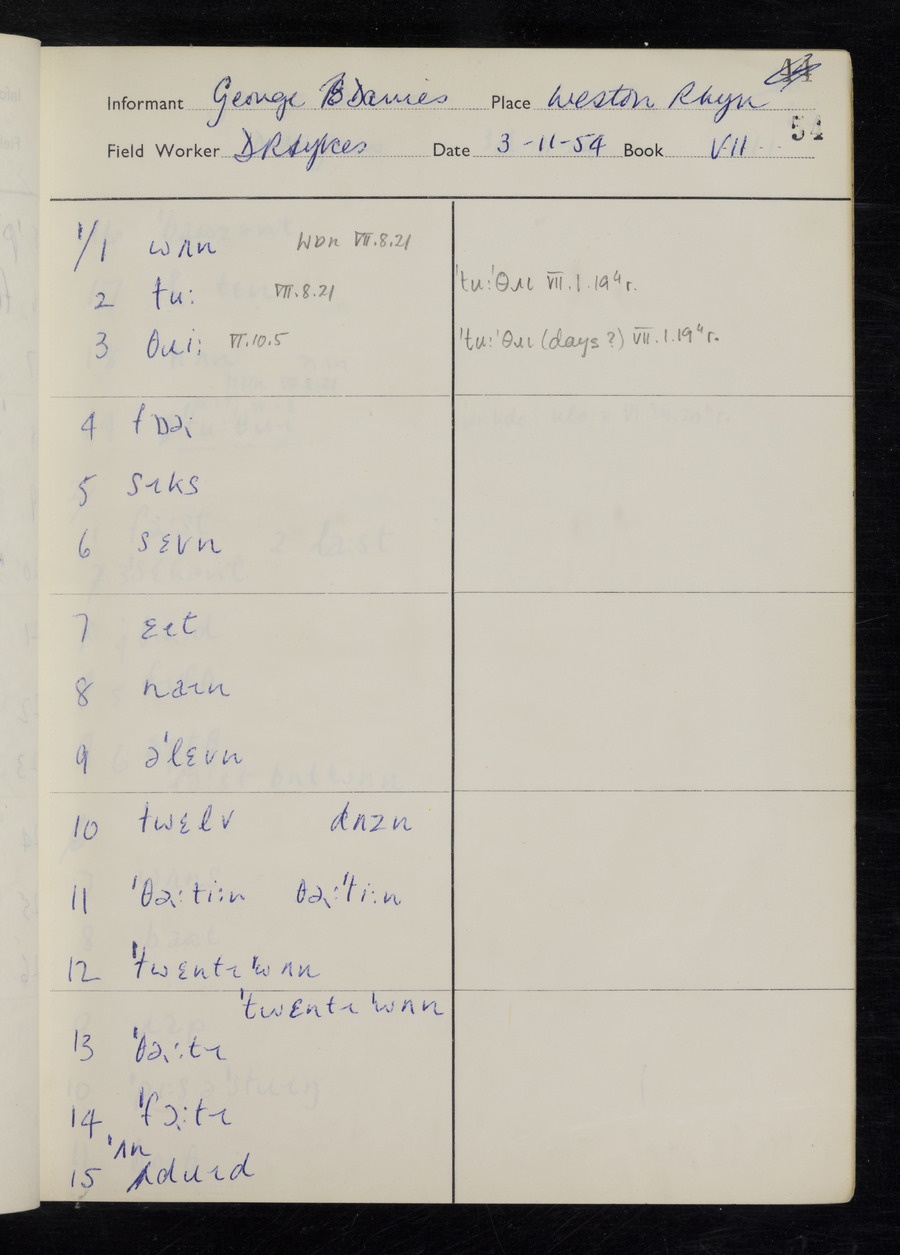 Informant George B Davies Place Weston Rhyn
54
Field Worker D R Sykes Date 3-11-54 Book VII
1/1 wʌn wɒn VII.8.21
2 tu: VII.8.21 'tu:'θɹɪ VII.1.19⁴r.
3 θɹi: VI.10.5 'tu:'θɹɪ (days?) VII.1.19⁴r.
4
5 sɪks
6 sɛvn
7 ɛɪt
8 naɪn
9 ə'lɛvn
10 twɛlv dʌzn
11 'θəɻ:ti:n θəɻ:'ti:n
12 'twɛntɪ'wʌn
'twɛntɪ'wʌn
13 'θəɻ:tɪ
14 'fɔɻ:tɪ
'ʌn
15